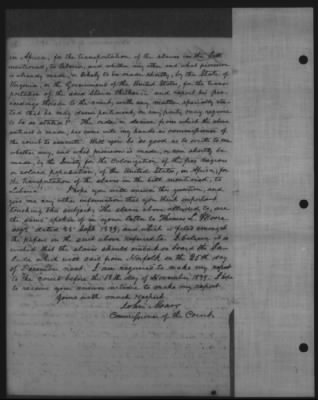 in Africa, for the transportation of the slaves in the bill
mentioned, to Liberia, and whether any other and what provision
is already made, or likely to be made shortly, by the State of
Virginia, or the Government of the United States, for the trans-
portation of the said slaves thither: and report his pro-
ceedings thereon to the court, with any matter specially sta-
ted that he may deem pertinent, or any party may require
to be so stated". The order or decree from which the above
extract is made, has come into my hands as commissioner of
the court to execute. Will you be so good as to write to me
whether any, and what provision is made, or can shortly be
made, by the Society for the Colonization of the free negroes
or colored population, of the United States, in Africa, for
the transportation of the slaves in the bill mentioned, to
Liberia? Please you will answer this question, and
give me any other information that you think important
touching this subject. The slaves above alluded to, are
the same spoken of in your letter to Thomas L. Moore
esqr. dated 21st Sept 1849, and which is filed amongst
the papers in the suit above referred to. I believe it is
wished that the slaves should embark on board the
which will sail from Norfolk on the 25th day
of December next. I am required to make my report
to the court before the 15th day of November 1849. I hope
to receive your answer in time to make my report.
Yours with much respect,
John
Commissioner of the Court.